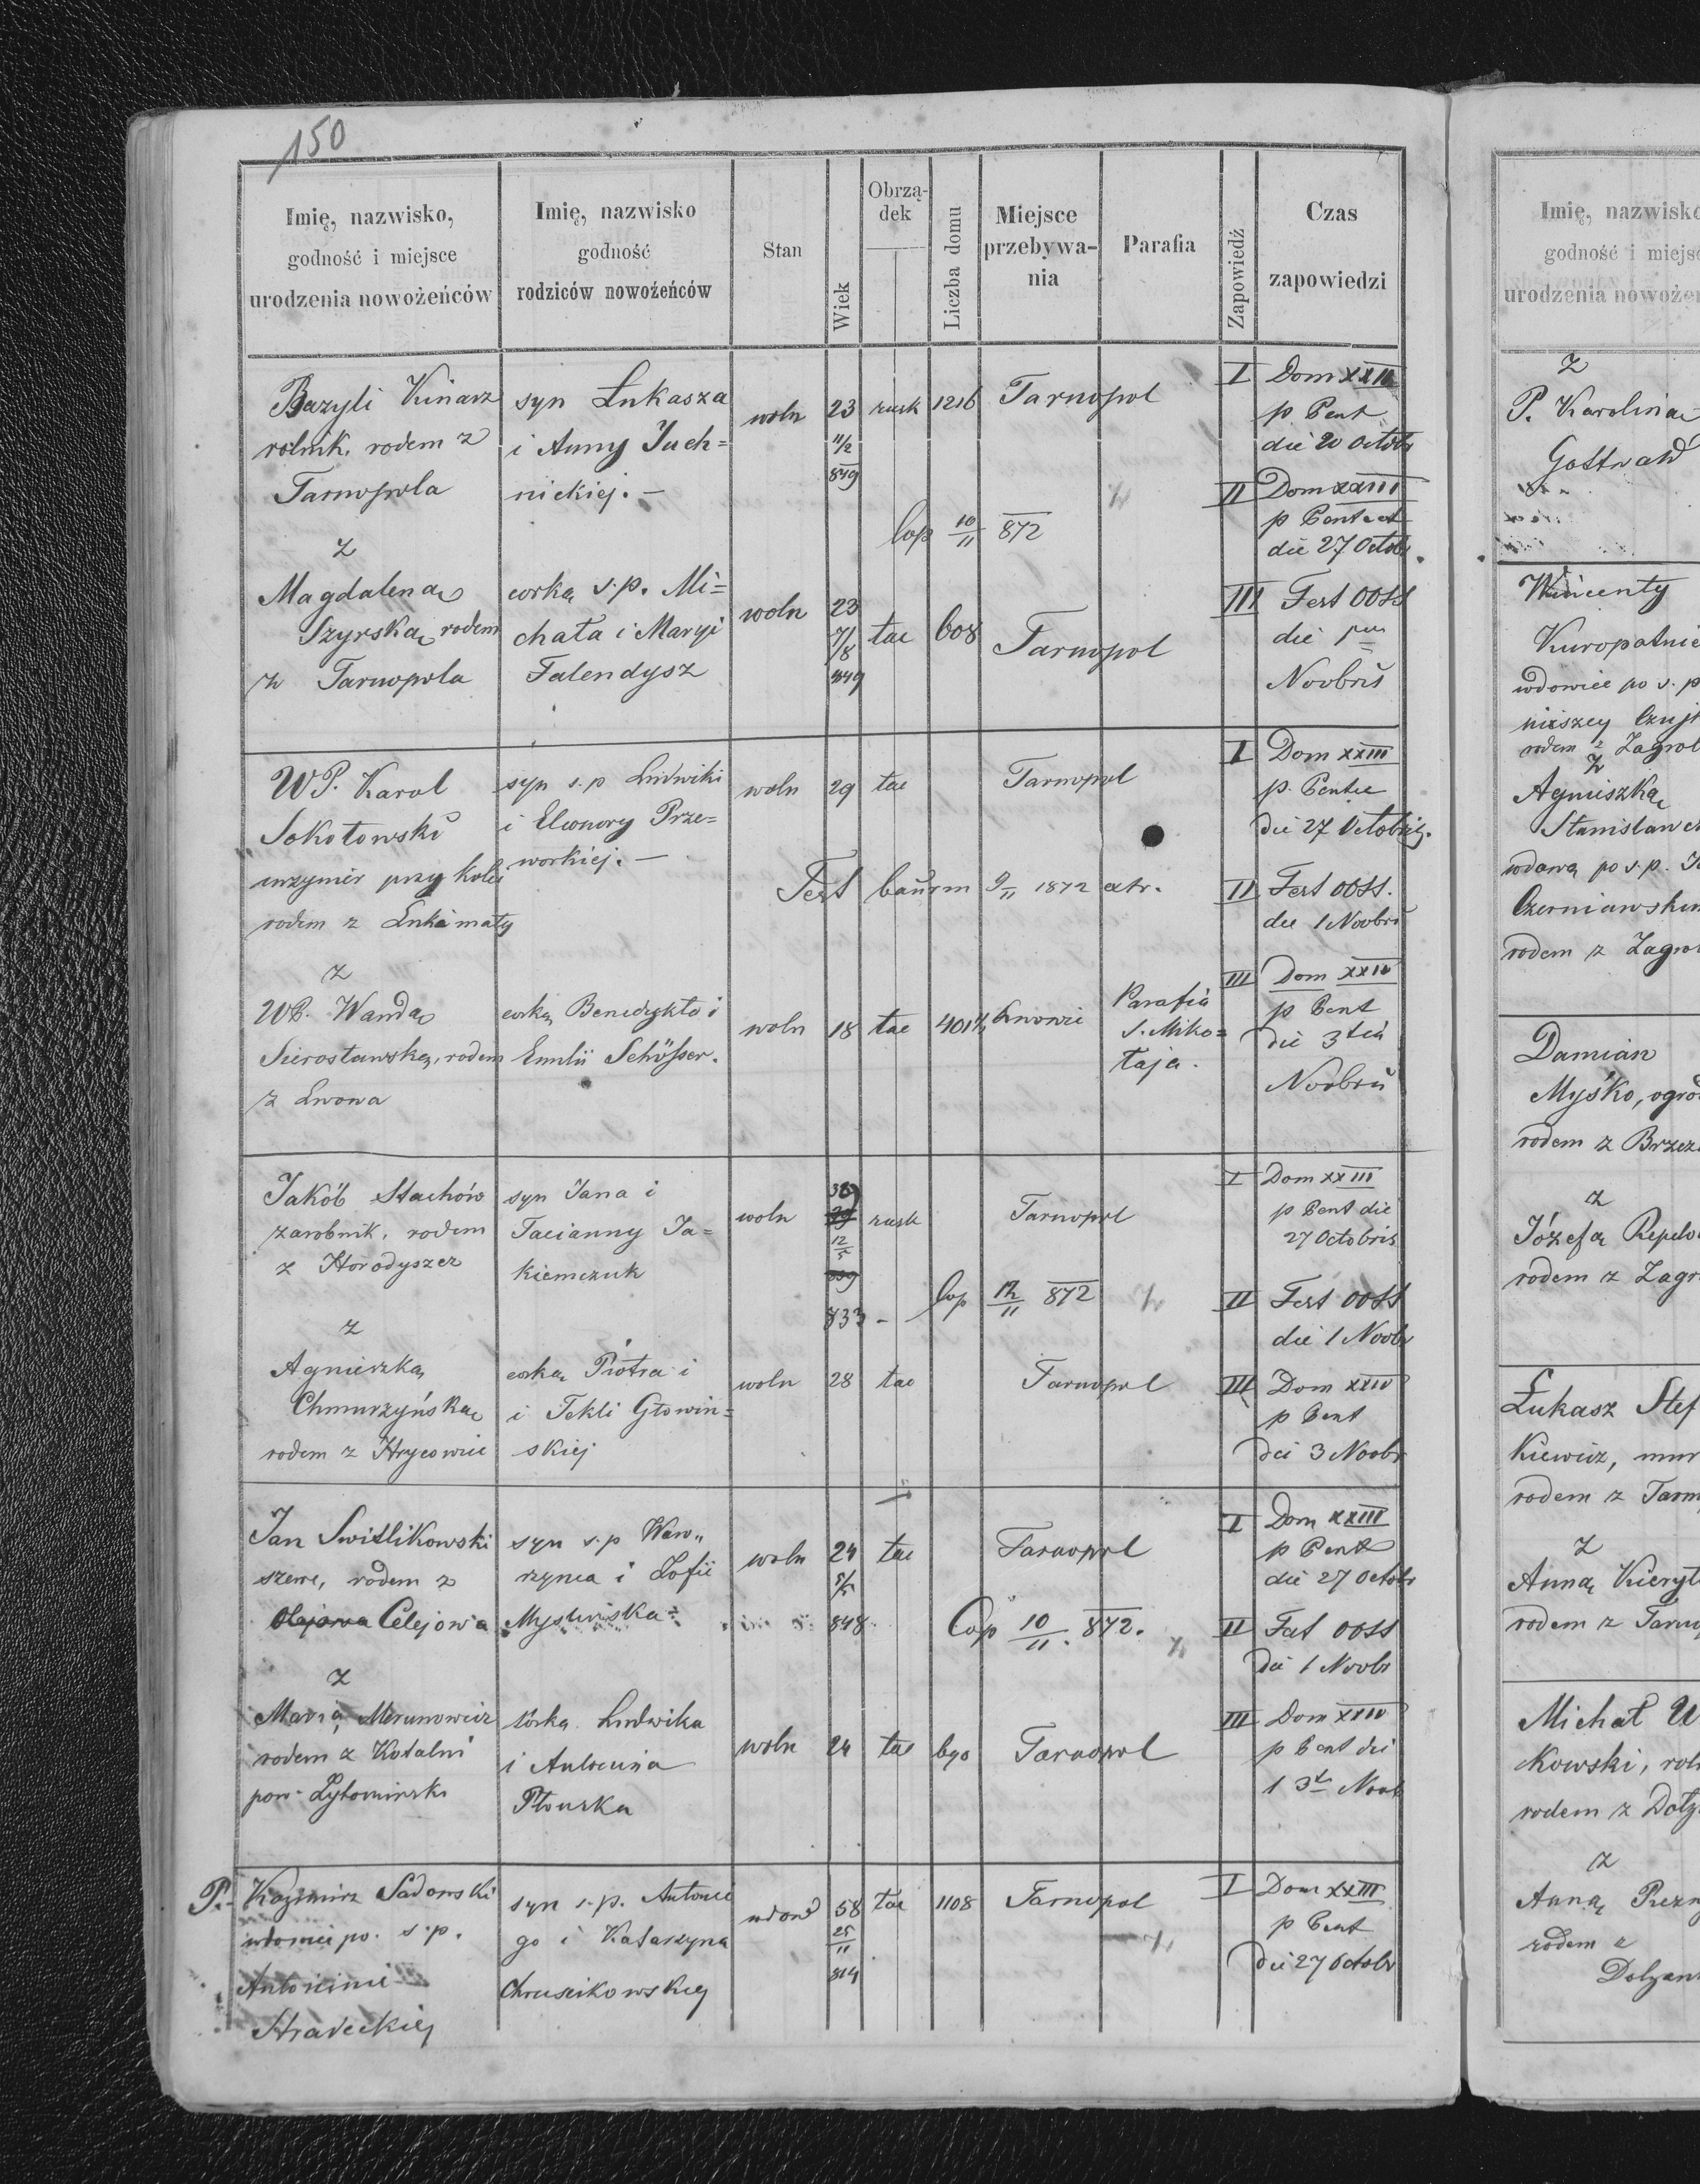 150
Imię, nazwisko,
godność i miejsce
urodzenia nowożeńców
Imię, nazwisko
godność
rodziców nowożeńców
Stan
Wiek
Obrzą-
dek
Liczba domu
Miejsce
przebywa-
nia
Parafia
Zapowiedź
Czas
zapowiedzi
Bazyli Kinarz
rolnik, rodem z
Tarnopola
syn Łukasza
i Anny Juch=
nickiej. —
woln
23
11/2
849
rusk
1216
Tarnopol
Cop 10/11 872
I Dom XXII
p Pent
die 20 Octobr
II Dom XXIII
p Pentect
die 27 Octobr.
z
Magdaleną
Szyrską rodem
z Tarnopola
corką s.p. Mi=
chała i Maryi
Falendysz
woln
23
7/8
849
łac
608
Tarnopol
III Fest OOSS
die 1ma
Novbris
WP. Karol
Sokołowski
inżynier przy kolei
rodem z
syn s.p Ludwiki
i Eleonory Prze=
worskiej. —
woln
29
łac
Tarnopol
Test 9/11 1872 extr.
I Dom XXIII
p. Pente
die 27 Octobris.
II Fest OOSS.
die 1 Novbris
z
WP. Wandą
Sierosławską, rodem
z Lwowa
corką Benedykta i
Emilii Schösser.
woln
18
łac
401 4/4
Lwowie
Parafia
S. Miko=
łaja.
III Dom XXIV
p Pent
die 3tia
Novbris
Jakób Stachów
zarobnik, rodem
z Horodyszcz
syn Jana i
Tacianny Ja=
kiemczuk
woln
39
12/5
833 -
rusk
Tarnopol
Cop 12/11 872
I Dom XXIII
p Pent die
27 Octobris
II Fest OOSS
die 1 Novbr
z
Agnieszką
Chmurzyńską
rodem z Hrycowiec
corką Piotra i
i Tekli Głowin=
skiej
woln
28
łac
Tarnopol
III Dom XXIV
p Pent
die 3 Novbr
Jan Switlikowski
szewc, rodem z
Olejowa Celejowa
syn s.p Waw„
rzynca i Zofii
Mysliwska
woln
24
5/5
848
łac
Tarnopol
Cop 10/11. 872.
I Dom XXIII
p Pent
die 27 Octobr
II Fest OOSS
die 1 Novbr
z
Maria Merunowicz
rodem z Kodalni
pow. Zytomirski
córka Ludwika
i Antonina
Płonska
woln
24
łac
690
Tarnopol
III Dom XXIV
p Pent die
1 3t Novb
P. Kazimirz Sadowski
wdowiec po. s.p.
Antoninie
Stradeckiej
syn s.p. Antonie
go i Katarzyna
Chrusцikowskiej
wdow
58
25/11
814
łac
1108
Tarnopol
I Dom XXIII
p Pent
die 27 Octobr
Imię, nazwisko
godność i miejsc
urodzenia nowożeń
z
P. Karoliną
Gottwald
Wincenty
Kuropatnic
wdowiec po s.p
rodem z Zagrob
z
Agnieszką
Stanisławcz
wdową po s.p. J
Czerniawskim
rodem z Zagrob
Damian
Myśko, ogrod
rodem z Brzeza
z
Józefą Repelo
rodem z Zagro
Łukasz Stef
kiewicz, mur
rodem z Tarn
z
Anną Kieryl
rodem z Tarno
Michał U
kowski, rol
rodem z Dołż
z
Anną Rezn
rodem z
Dolżan